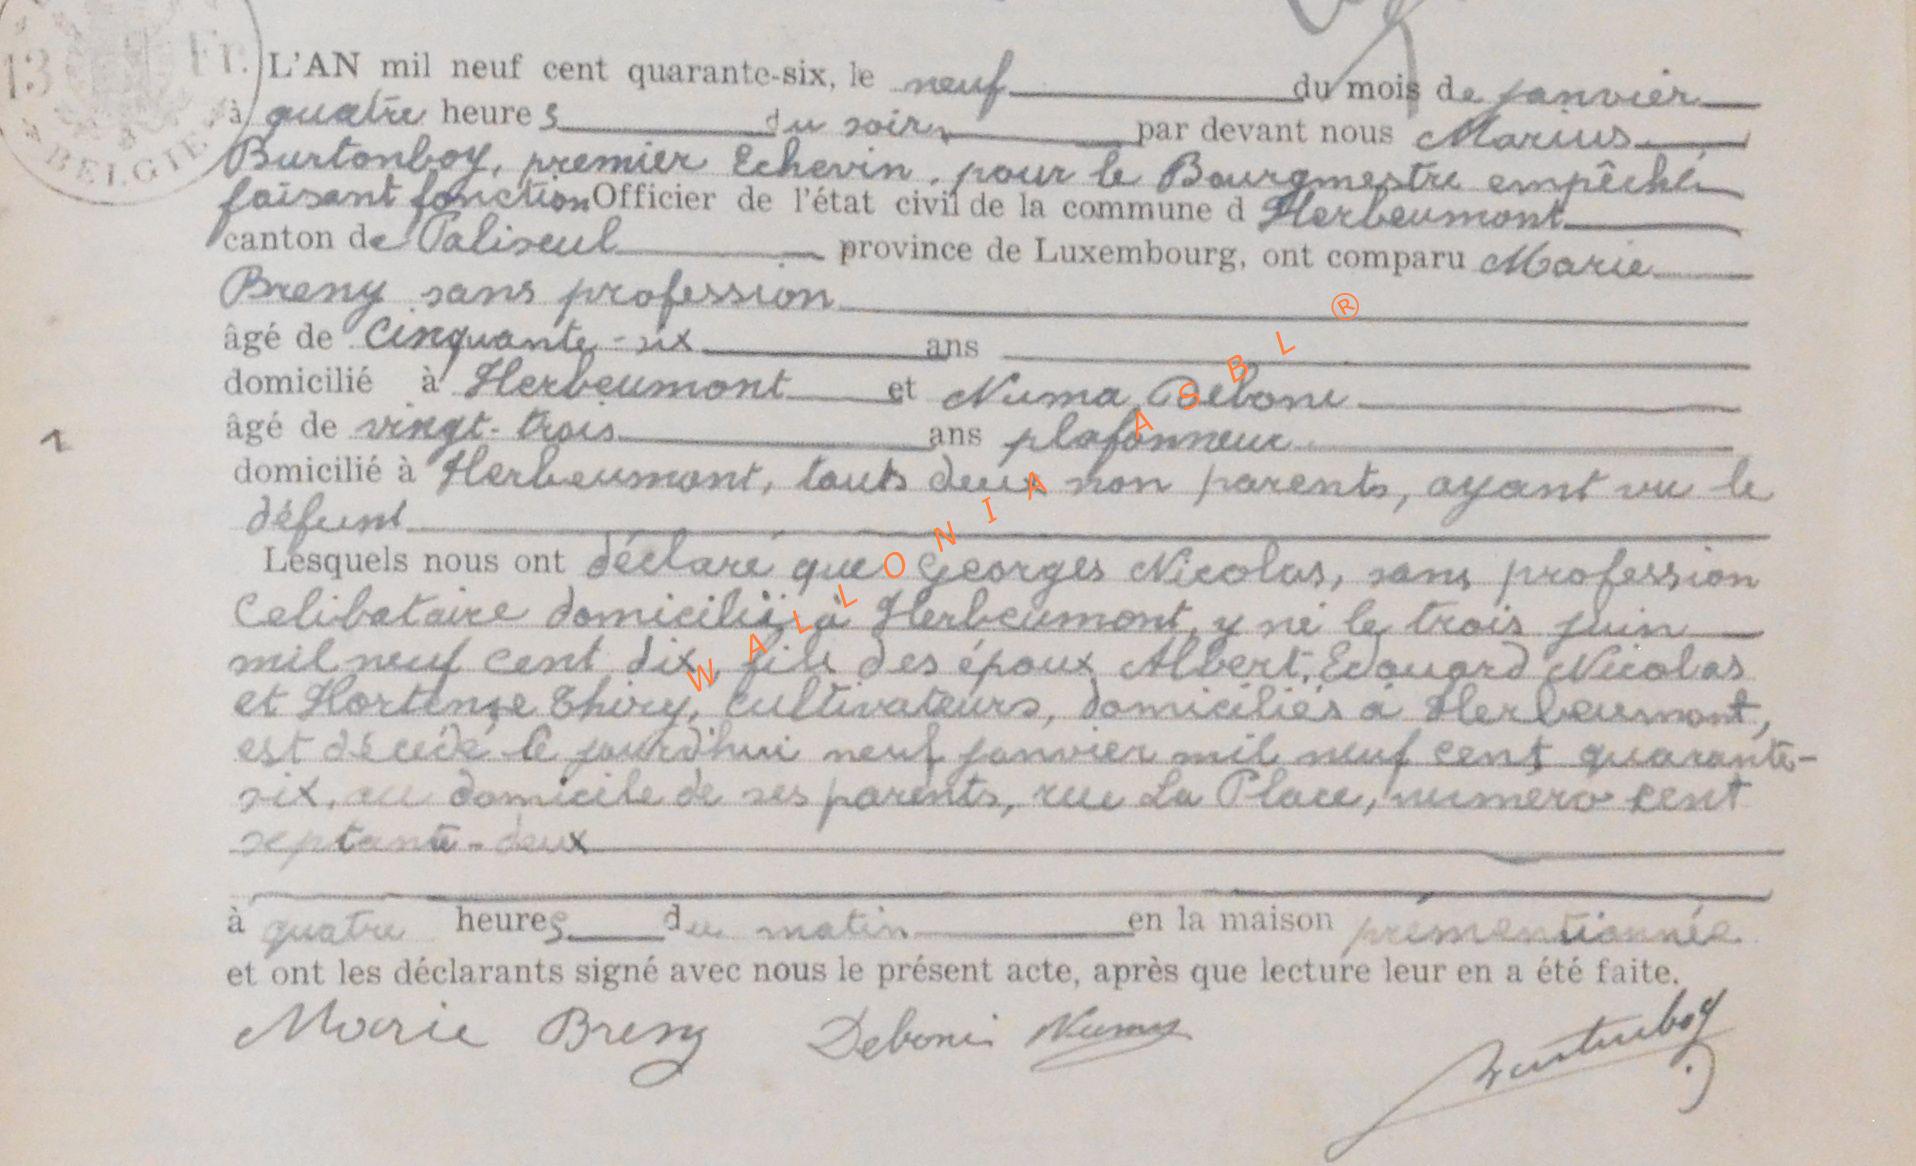 13 Fr.
BELGIE
L'AN mil neuf cent quarante-six, le neuf du mois de janvier
à quatre heures du soir, par devant nous Marius
Burtonboy, premier Echevin, pour le Bourgmestre empêché
faisant fonction Officier de l'état civil de la commune d Herbeumont
canton de Paliseul province de Luxembourg, ont comparu Marie
Breny sans profession
âgé de Cinquante-six ans
domicilié à Herbeumont et Numa Deboni
âgé de vingt-trois ans plafonneur
domicilié à Herbeumont, touts deux non parents, ayant vu le
défunt
Lesquels nous ont déclaré que Georges Nicolas, sans profession
Celibataire domicilié à Herbeumont, y né le trois juin
mil neuf cent dix, fils des époux Albert, Edouard Nicolas
et Hortense Thiry, Cultivateurs, domiciliés à Herbeumont,
est décédé le jourd'hui neuf janvier mil neuf cent quarante-
six, au domicile de ses parents, rue La Place, numero cent
septante-deux
à quatre heures du matin en la maison prémentionnée
et ont les déclarants signé avec nous le présent acte, après que lecture leur en a été faite.
Marie Breny Deboni Numa Burtonboy
WALLONIA ASBL ®